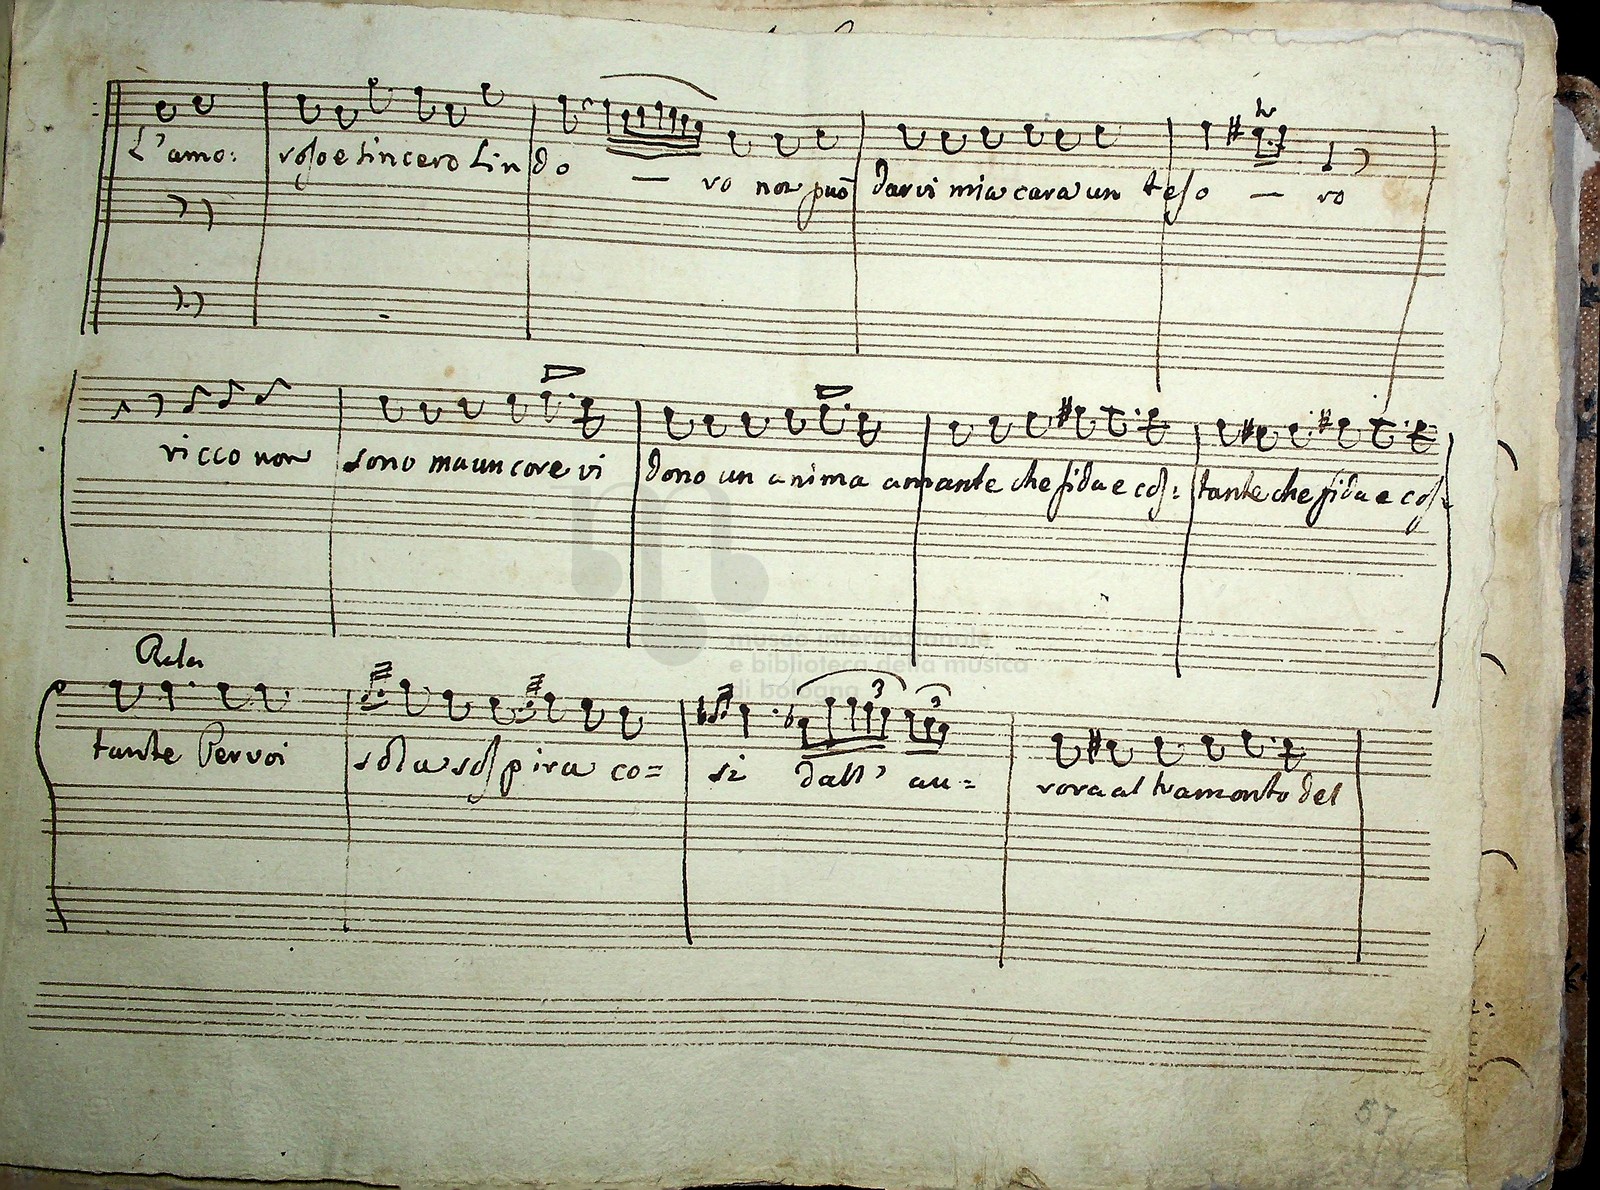 L'amo: roso e sincero Lindo — ro non può darvi mia cara un teso — ro
ricco non sono ma un core vi dono un anima amante che fida e cos: tante che fida e cos:
tante Per voi sola sospira co= si dall' au= rora al tramonto del
museo internazionale
e biblioteca della musica
di bologna
57